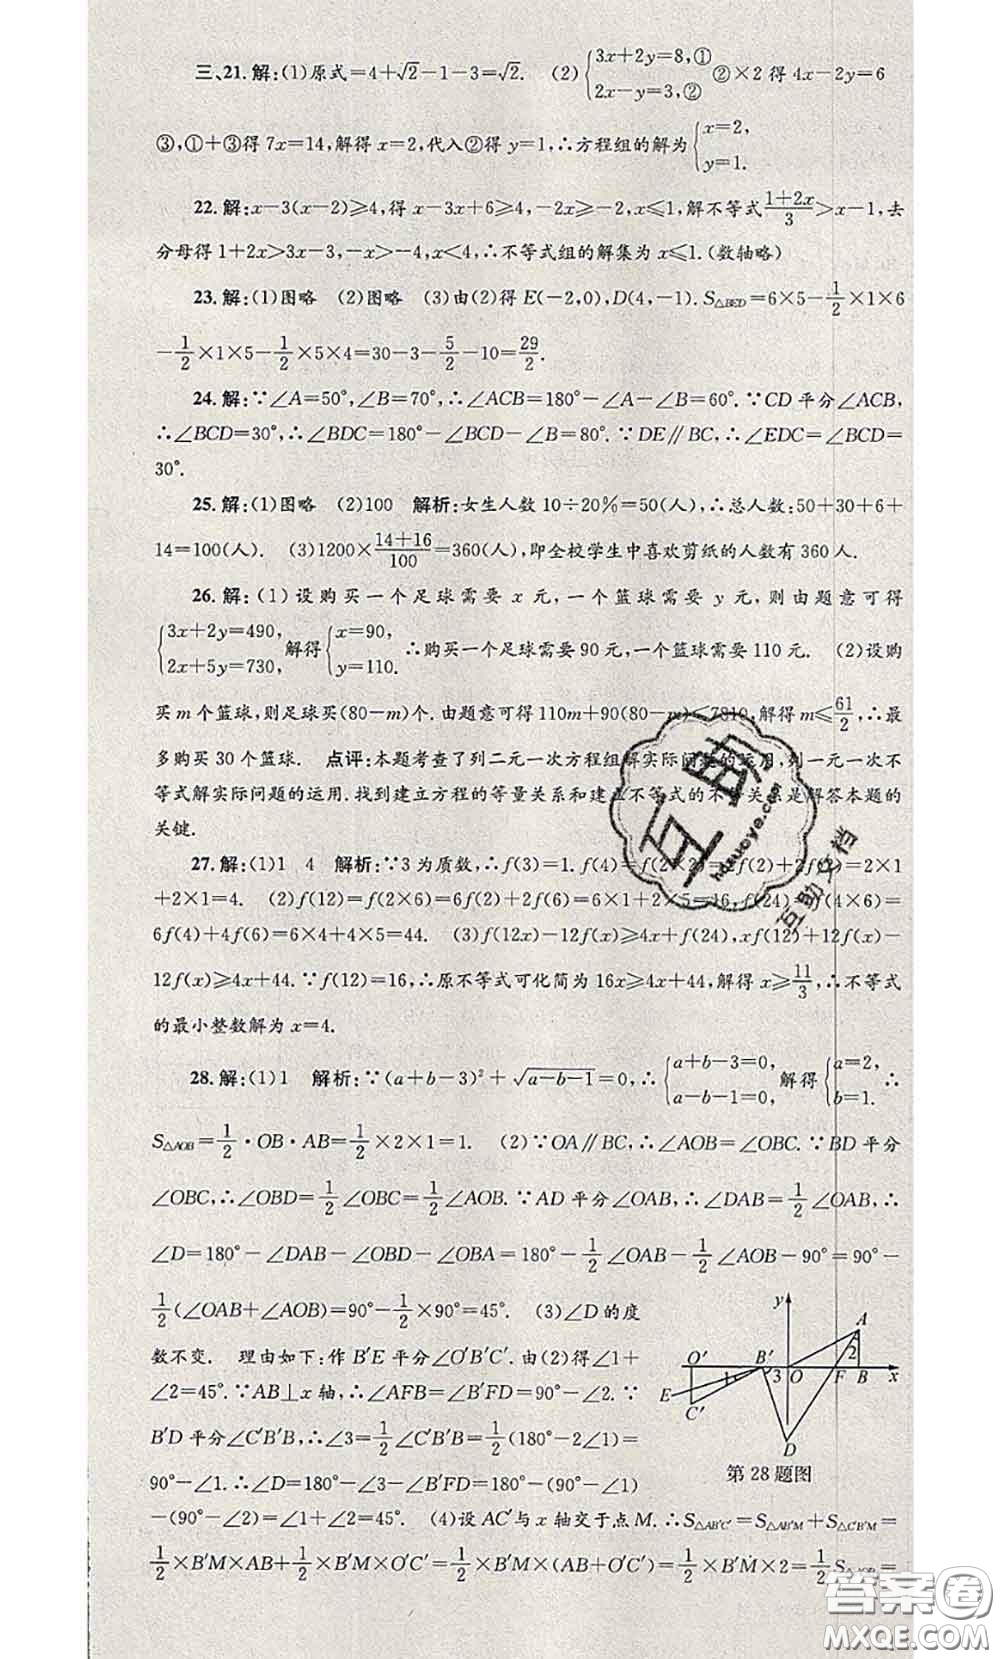 三、21.解:(1)原式=4+√2-1-3=√2. (2){3x+2y=8,① 2x-y=3,② ②×2得4x-2y=6
③,①+③得7x=14,解得x=2,代入②得y=1,∴方程组的解为{x=2, y=1.
22.解:x-3(x-2)≥4,得x-3x+6≥4,-2x≥-2,x≤1,解不等式(1+2x)/3>x-1,去
分母得1+2x>3x-3,-x>-4,x<4,∴不等式组的解集为x≤1.(数轴略)
23.解:(1)图略 (2)图略 (3)由(2)得E(-2,0),D(4,-1).S△BED=6×5-1/2×1×6
-1/2×1×5-1/2×5×4=30-3-5/2-10=29/2.
24.解:∵∠A=50°,∠B=70°,∴∠ACB=180°-∠A-∠B=60°.∵CD平分∠ACB,
∴∠BCD=30°,∴∠BDC=180°-∠BCD-∠B=80°.∵DE∥BC,∴∠EDC=∠BCD=
30°.
25.解:(1)图略 (2)100 解析:女生人数10÷20%=50(人),∴总人数:50+30+6+
14=100(人). (3)1200×(14+16)/100=360(人),即全校学生中喜欢剪纸的人数有360人.
26.解:(1)设购买一个足球需要x元,一个篮球需要y元,则由题意可得
{3x+2y=490, 2x+5y=730, 解得{x=90, y=110. ∴购买一个足球需要90元,一个篮球需要110元. (2)设购
买m个篮球,则足球买(80-m)个.由题意可得110m+90(80-m)≤7810,解得m≤61/2,∴最
多购买30个篮球. 点评:本题考查了列二元一次方程组解实际问题的运用,列一元一次不
等式解实际问题的运用.找到建立方程的等量关系和建立不等式的不等关系是解答本题的
关键.
27.解:(1)1 4 解析:∵3为质数,∴f(3)=1.f(4)=f(2×2)=2f(2)+2f(2)=2×1
+2×1=4. (2)f(12)=f(2×6)=6f(2)+2f(6)=6×1+2×5=16,f(24)=f(4×6)=
6f(4)+4f(6)=6×4+4×5=44. (3)f(12x)-12f(x)≥4x+f(24),xf(12)+12f(x)-
12f(x)≥4x+44.∵f(12)=16,∴原不等式可化简为16x≥4x+44,解得x≥11/3,∴不等式
的最小整数解为x=4.
28.解:(1)1 解析:∵(a+b-3)²+√(a-b-1)=0,∴{a+b-3=0, a-b-1=0, 解得{a=2, b=1. ∴
S△AOB=1/2·OB·AB=1/2×2×1=1. (2)∵OA∥BC,∴∠AOB=∠OBC.∵BD平分
∠OBC,∴∠OBD=1/2∠OBC=1/2∠AOB.∵AD平分∠OAB,∴∠DAB=1/2∠OAB,∴
∠D=180°-∠DAB-∠OBD-∠OBA=180°-1/2∠OAB-1/2∠AOB-90°=90°-
1/2(∠OAB+∠AOB)=90°-1/2×90°=45°. (3)∠D的度
数不变. 理由如下:作B′E平分∠O′B′C′.由(2)得∠1+
∠2=45°.∵AB⊥x轴,∴∠AFB=∠B′FD=90°-∠2.∵
B′D平分∠C′B′B,∴∠3=1/2∠C′B′B=1/2(180°-2∠1)=
90°-∠1.∴∠D=180°-∠3-∠B′FD=180°-(90°-∠1)
-(90°-∠2)=∠1+∠2=45°. (4)设AC′与x轴交于点M.∴S△AB′C′=S△AB′M+S△C′B′M=
1/2×B′M×AB+1/2×B′M×O′C′=1/2×B′M×(AB+O′C′)=1/2×B′M×2=1/2S△AOB=
y
A
2
O′ B′ 3 O F B x
1
E
C′
D
第28题图
互助文档
hdzuoye.com
答案圈
MXQE.COM